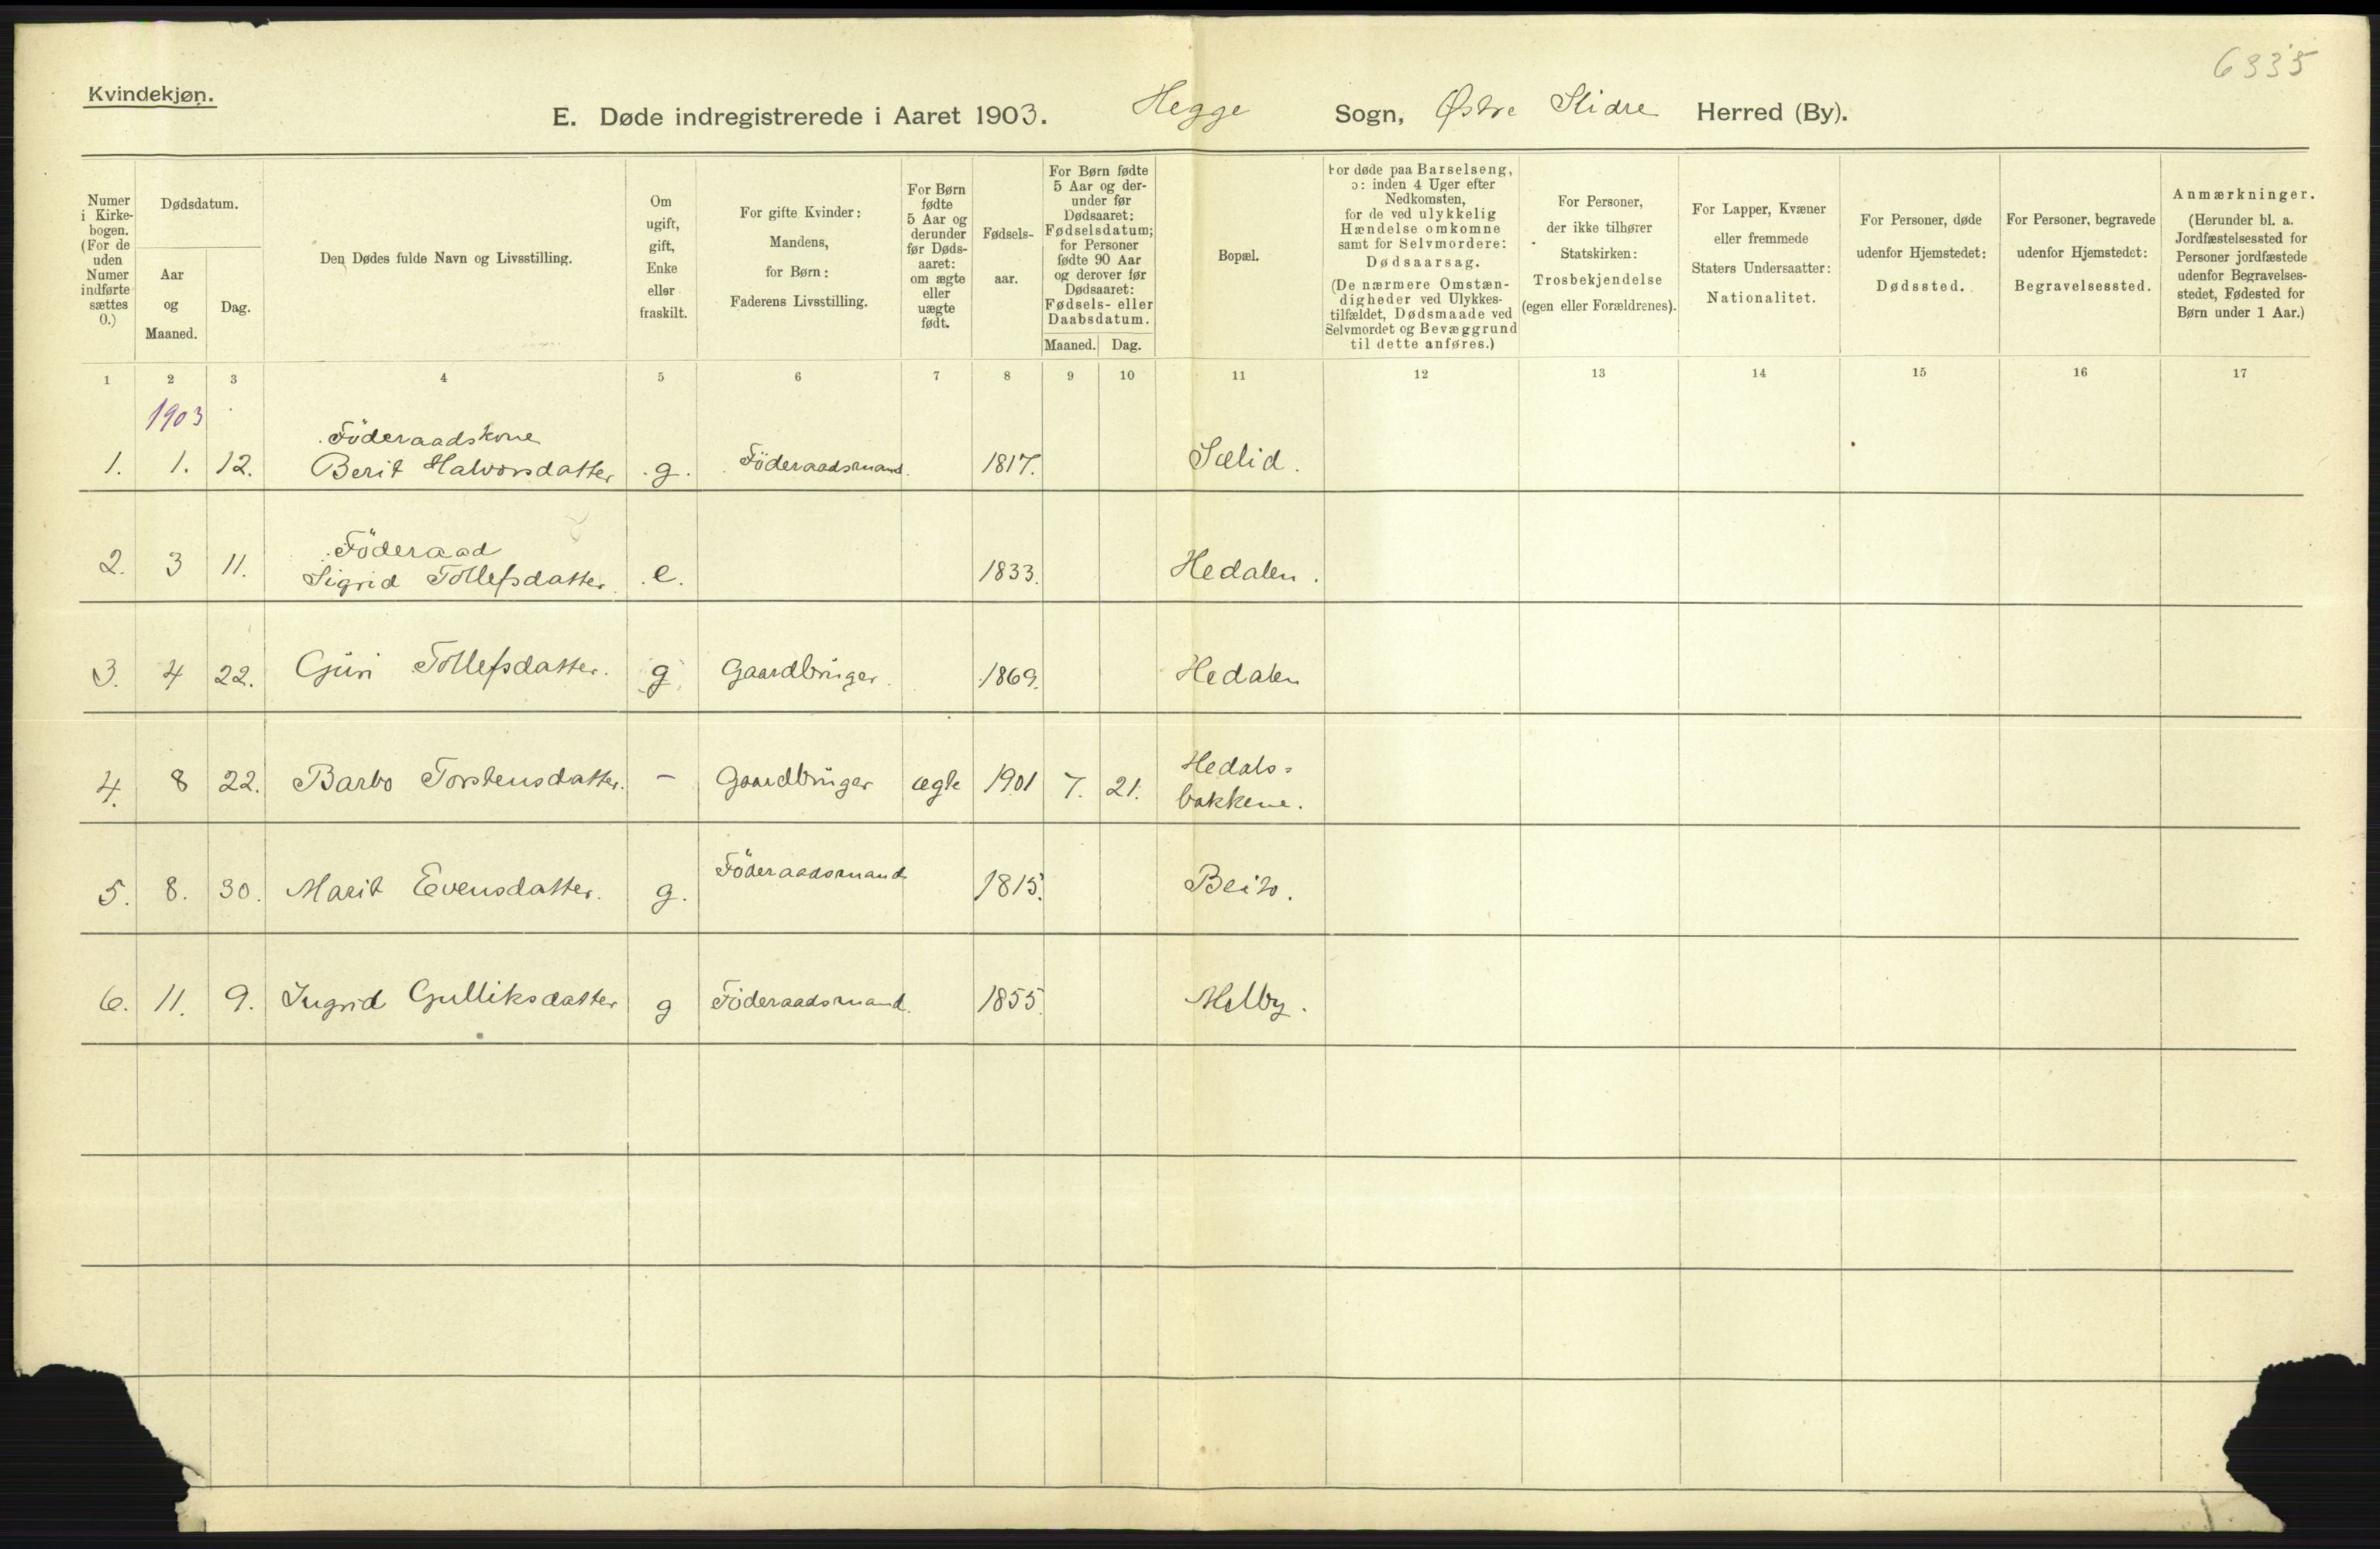 6335
Kvindekjøn.
E. Døde indregistrerede i Aaret 1903. Hegge Sogn, Østre Slidre Herred (By).
Numer
i Kirke-
bogen.
(For de
uden
Numer
indførte
sættes
0.)
Dødsdatum.
Aar
og
Maaned.
Dag.
Den Dødes fulde Navn og Livsstilling.
Om
ugift,
gift,
Enke
eller
fraskilt.
For gifte Kvinder:
Mandens,
for Børn:
Faderens Livsstilling.
For Børn
fødte
5 Aar og
derunder
før Døds-
aaret:
om ægte
eller
uægte
født.
Fødsels-
aar.
For Børn fødte
5 Aar og der-
under før
Dødsaaret:
Fødselsdatum;
for Personer
fødte 90 Aar
og derover før
Dødsaaret:
Fødsels- eller
Daabsdatum.
Maaned. Dag.
Bopæl.
For døde paa Barselseng,
ɔ: inden 4 Uger efter
Nedkomsten,
for de ved ulykkelig
Hændelse omkomne
samt for Selvmordere:
Dødsaarsag.
(De nærmere Omstæn-
digheder ved Ulykkes-
tilfældet, Dødsmaade ved
Selvmordet og Bevæggrund
til dette anføres.)
For Personer,
der ikke tilhører
Statskirken:
Trosbekjendelse
(egen eller Forældrenes).
For Lapper, Kvæner
eller fremmede
Staters Undersaatter:
Nationalitet.
For Personer, døde
udenfor Hjemstedet:
Dødssted.
For Personer, begravede
udenfor Hjemstedet:
Begravelsessted.
Anmærkninger.
(Herunder bl. a.
Jordfæstelsessted for
Personer jordfæstede
udenfor Begravelses-
stedet, Fødested for
Børn under 1 Aar.)
1 2 3 4 5 6 7 8 9 10 11 12 13 14 15 16 17
1903
Föderaadskone
1. 1. 12. Berit Halvorsdatter g. Föderaadsmand. 1817. Sælid.
Föderaad
2. 3 11. Sigrid Tollefsdatter. e. 1833. Hedalen.
3. 4 22. Guri Tollefsdatter. g. Gaardbruger. 1869. Hedalen
4. 8 22. Barbo Torstensdatter. - Gaardbruger ægte 1901 7. 21. Hedals=
bakkene.
5. 8. 30. Marit Evensdatter. g. Föderaadsmand 1815. Beito.
6. 11. 9. Ingrid Gulliksdatter g Föderaadsmand. 1855. Melby.